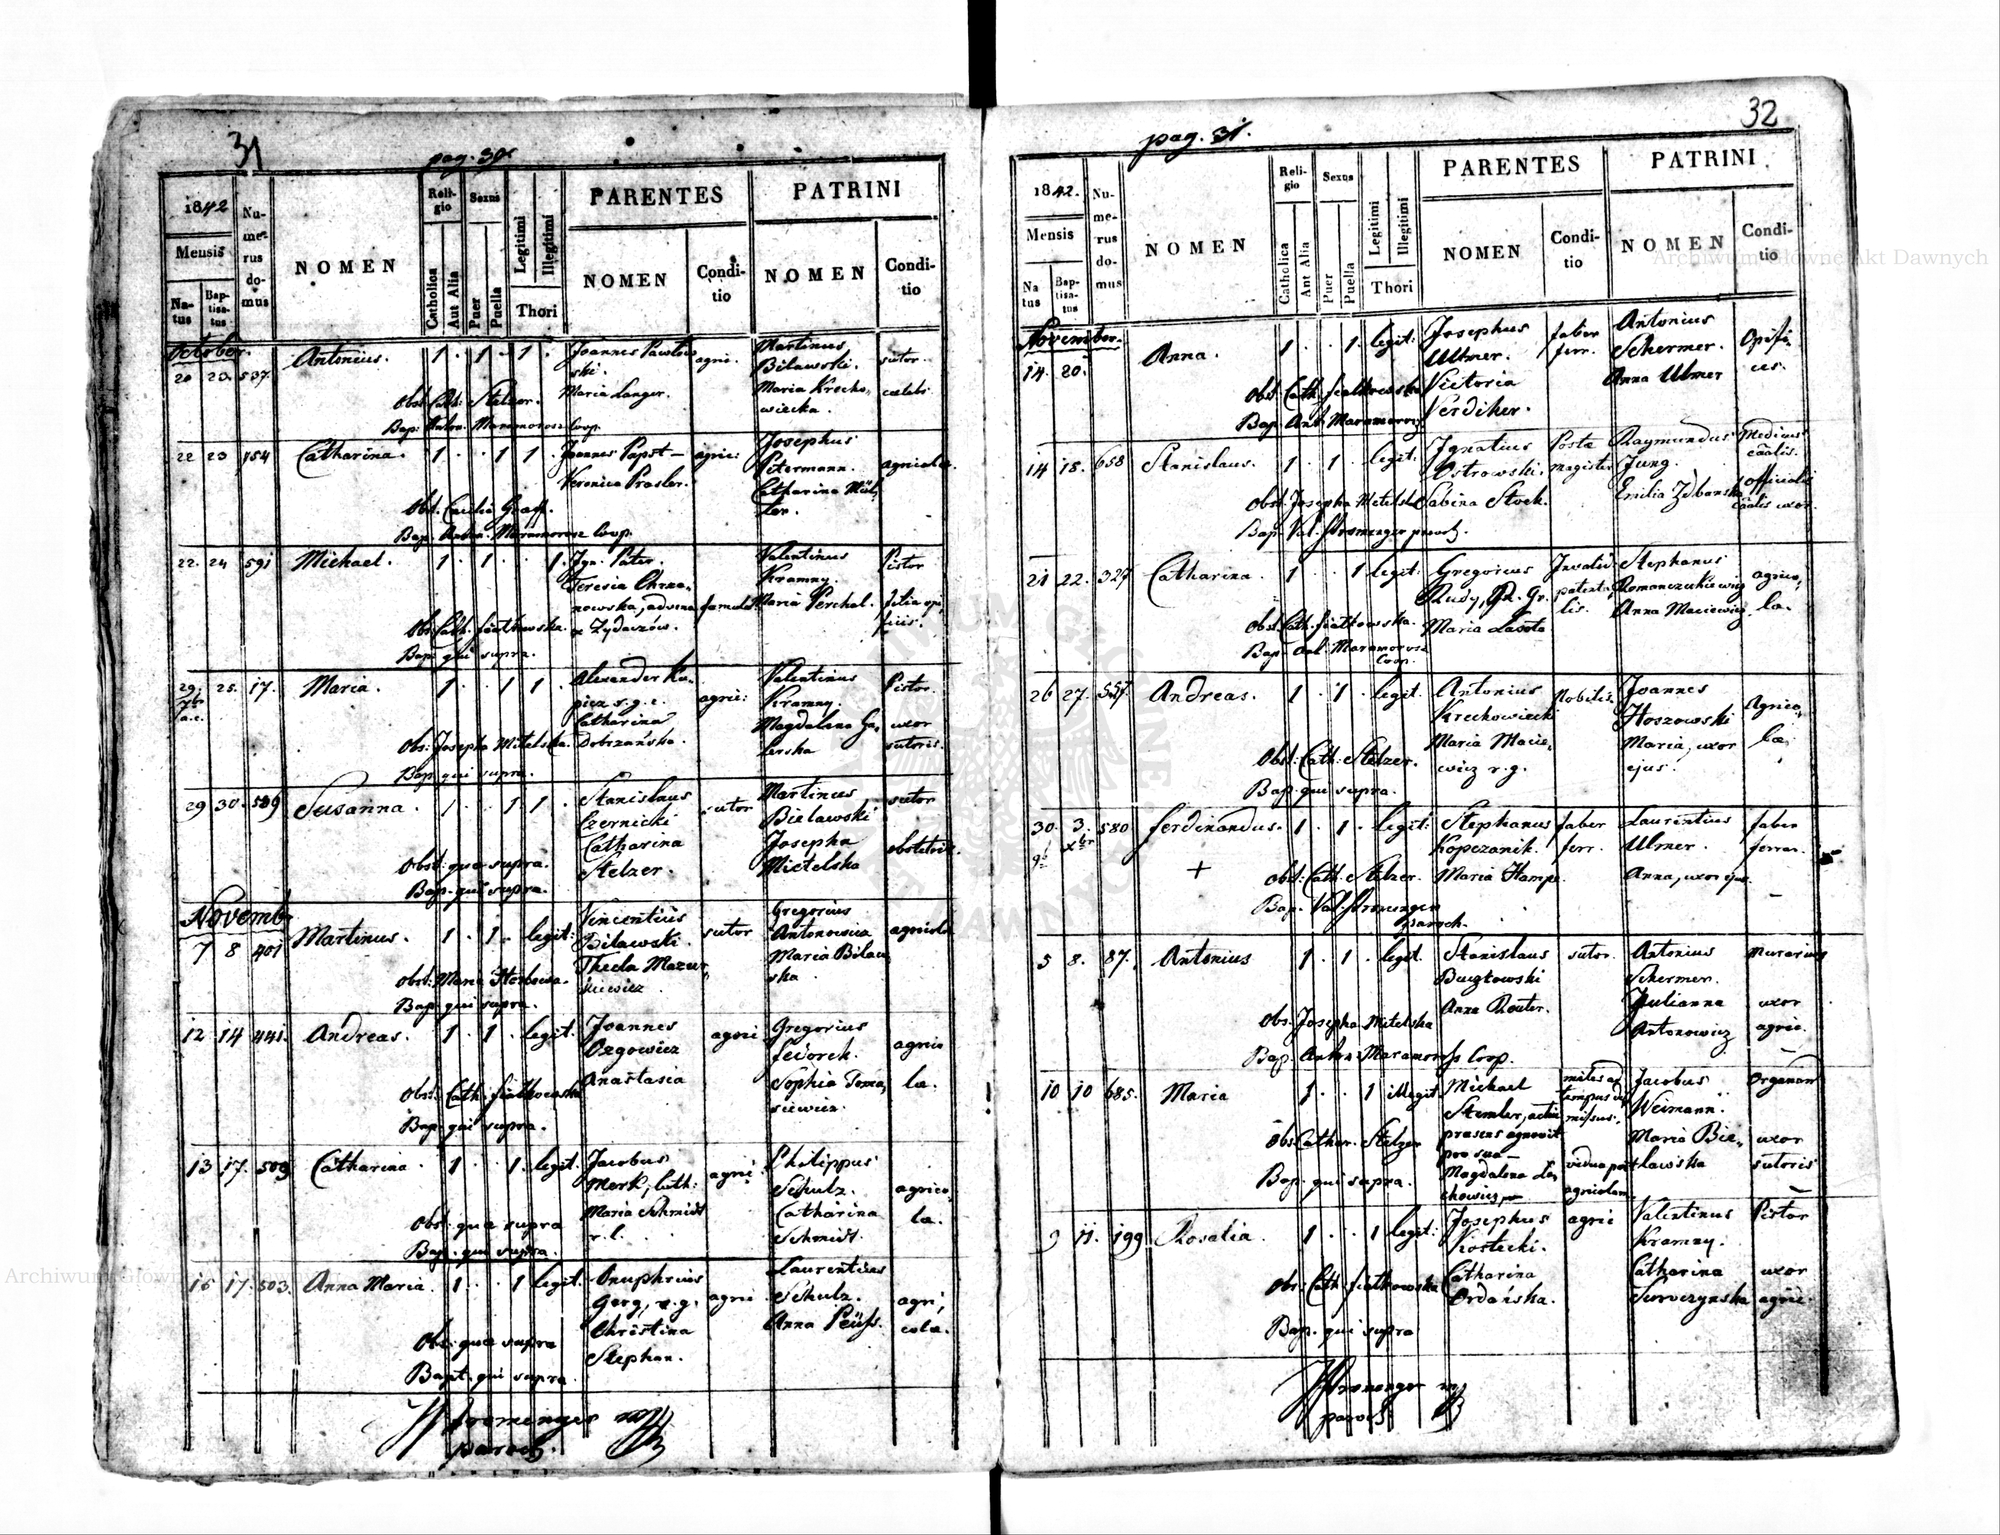 31
pag. 30.
1842
Mensis
Na-
tus
Bap-
tisa-
tus
Nu-
me-
rus
do-
mus
NOMEN
Reli-
gio
Catholica
Aut Alia
Sexus
Puer
Puella
Legitimi
Illegitimi
Thori
PARENTES
NOMEN
Condi-
tio
PATRINI
NOMEN
Condi-
tio
October.
20 23. 537. Antonius. 1 . 1 . 1 .
Joannes Pawlow
ski.
Maria Langer.
agric.
Martinus
Bilawski.
Maria Krecho-
wiecka.
sutor.
caelebs
Obst. Cath: Stelzer.
Bap: Anton. Maramorosz Coop.
22 23 154 Catharina. 1 . . 1 1 .
Joannes Papst —
Veronica Prasler.
agric:
Josephus
Petermann.
Catharina Mül-
ler.
agricolae.
Obst. Caecilia Graff.
Bap. Anton. Maramorosz Coop.
22. 24 591 Michael. 1 . 1 . . 1.
Ign. Pater.
Teresia Chrza-
nowska, advena
ex Zydaczów.
famula
Valentinus
Kramny.
Maria Perchal.
Pistor
filia opi-
ficis.
Obs. Cath. Fiałkowska.
Bap. qui supra.
29. 25. 17. Maria. 1 . . 1 1 .
7br
a.c.
Alexander Ku-
piec r.g. c.
Catharina
Dobrzańska.
agric:
Valentinus
Kramny.
Magdalena Ga-
lerska
Pistor.
uxor
sutoris.
Obs: Josepha Mitelska.
Bap. qui supra.
29 30. 589 Susanna. 1 . . 1 1 .
Stanislaus
Czernicki
Catharina
Stelzer.
sutor
Martinus
Bielawski
Josepha
Mietelska
sutor
obstetrix.
Obst: quae supra.
Bap. qui supra.
Novemb.
7 8 401 Martinus. 1 . 1 . legit:
Vincentius
Bilawski.
Thecla Mazur-
kiewicz.
sutor
Gregorius
Antonowicz
Maria Bilaw-
ska.
agricola
Bap. qui supra.
12 14 441. Andreas. 1 . 1 . legit.
Joannes
Ozgowicz
Anastasia
agric.
Gregorius
Fedorek.
Sophia Toma-
siewicz.
agrico
lae.
Obs: Cath. Fiałkowska
Bap. qui supra.
13 17. 509 Catharina. 1 . . 1 . legit.
Jacobus
Merk, luth:
Maria Schmidt
r. l.
agric.
Philippus
Schulz.
Catharina
Schmidt.
agrico-
lae.
Obs. quae supra
Bap. qui supra.
16 17. 503. Anna Maria. 1 . . 1 legit.
Onuphrius
Gerg, r.g.
Christina
Stephan.
agric.
Laurentius
Schulz.
Anna Peüss.
agri-
colae.
Obs. quae supra
Bapt. qui supra.
Stromenger mp
paroch.
32
pag. 31.
1842.
Mensis
Na
tus
Bap-
tisa-
tus
Nu-
me-
rus
do-
mus
NOMEN
Reli-
gio
Catholica
Aut Alia
Sexus
Puer
Puella
Legitimi
Illegitimi
Thori
PARENTES
NOMEN
Condi-
tio
PATRINI
NOMEN
Condi-
tio
November.
14. 20. Anna. 1 . . 1 legit:
Josephus
Ulmer.
Victoria
Verdiher.
faber
ferr.
Antonius
Schermer.
Anna Ulmer
Opifi-
ces.
Obst. Cath. Fiałkowska
Bap. Ant. Maramorosz
14 18. 658 Stanislaus. 1 . 1 . legit:
Ignatius
Ostrowski.
Sabina Stock.
Postae
magister
Raymundus
Jung.
Emilia Zdbanska
Medicus
cäalis.
officialis
cäalis uxor.
Obst. Josepha Mitelska
Bap. Val. Stromenger paroch.
21 22. 327 Catharina. 1 . . 1 legit:
Gregorius
Rudy, R. Gr.
Maria Lasota
Invalid.
patenta-
lis.
Stephanus
Romanczukiewicz
Anna Maciewicz
agrico-
lae.
Obst. Cath. Fiałkowska.
Bap. Ant. Maramorosz
Coop.
26 27. 557. Andreas. 1 . 1 . legit.
Antonius
Krechowiecki
Maria Macie-
wicz r.g.
Nobilis.
Joannes
Hoszowski
Maria, uxor
ejus.
Agrico-
lae,
Obst: Cath: Stelzer.
Bap. qui supra.
30. 3. 580 Ferdinandus. 1 . 1 . legit:
9b
Xbr
+
Stephanus
Kopczanik.
Maria Hampe.
faber
ferr.
Laurentius
Ulmer.
Anna, uxor ejus.
faber
ferrar.
Obst: Cath. Stelzer.
Bap. Val. Stromenger
paroch.
5 8. 87. Antonius 1 . 1 . legit.
Stanislaus
Buczkowski
Anna Reuter.
sutor.
Antonius
Schermer.
Julianna
Antonowicz
murarius
uxor
agric.
Obs. Josepha Mitelska
Bap. Anton. Maramorosz Coop.
10 10 685. Maria 1 . . 1 illegit
Michael
Stemler, actu
praesens agnovit
pro sua —
Magdalena La-
chowicz,
miles ad
tempus di-
missus.
vidua post
agricolam.
Jacobus
Weimann.
Maria Bie-
lawska
Organar
uxor
sutoris
Obs. Cathar. Stelzer
Bap. qui supra.
9 11. 199 Rosalia. 1 . . 1 legit:
Josephus
Kostecki.
Catharina
Ordańska.
agric
Valentinus
Kramny.
Catharina
Suroczynska
Pistor
uxor
agric.
Obs. Cath. Fiałkowska
Bap. qui supra
Stromenger mp
paroch
Archiwum Główne Akt Dawnych